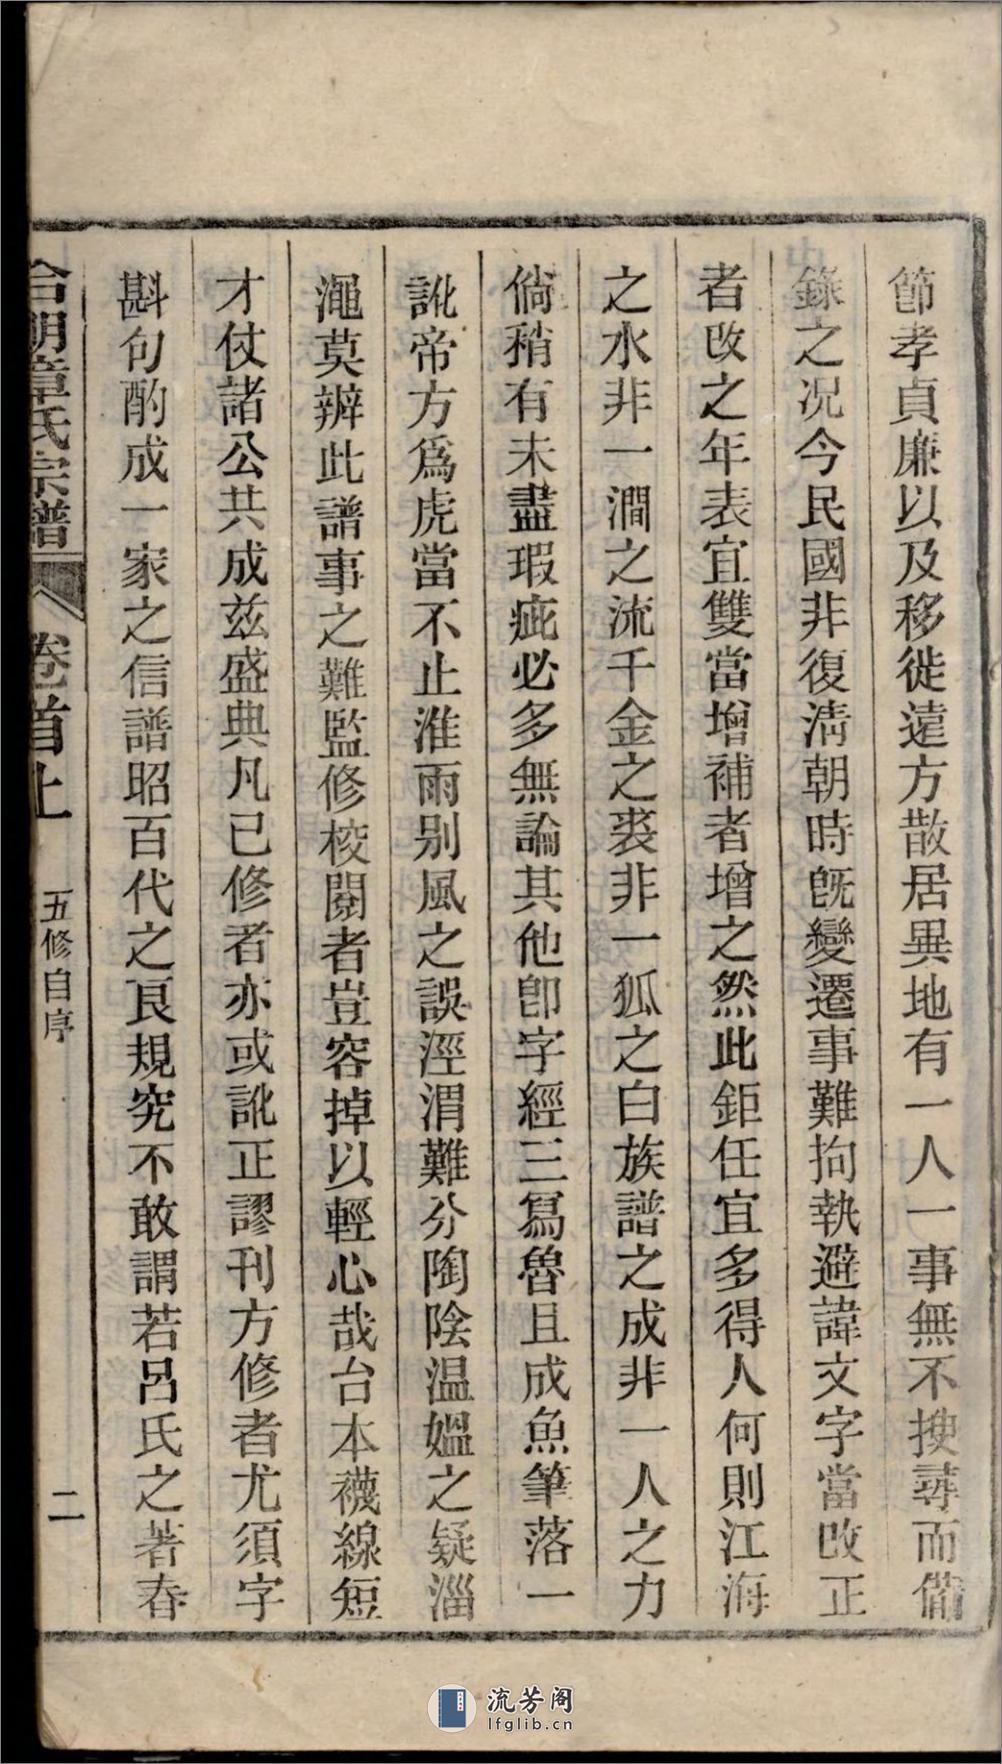 節孝貞廉以及移徙遠方散居異地有一人一事無不搜尋而備
錄之况今民國非復淸朝時旣變遷事難拘執避諱文字當改正
者改之年表宜雙當增補者增之然此鉅任宜多得人何則江海
之水非一澗之流千金之裘非一狐之白族譜之成非一人之力
倘稍有未盡瑕疵必多無論其他卽字經三寫魯且成魚筆落一
訛帝方爲虎當不止淮雨别風之誤涇渭難分陶陰温媪之疑淄
澠莫辨此譜事之難監修校閱者豈容掉以輕心哉台本襪線短
才仗諸公共成兹盛典凡已修者亦或訛正謬刊方修者尤須字
斟句酌成一家之信譜昭百代之良規究不敢謂若呂氏之著春
合朋章氏宗譜 卷首上 五修自序 二
流芳阁
lfglib.cn